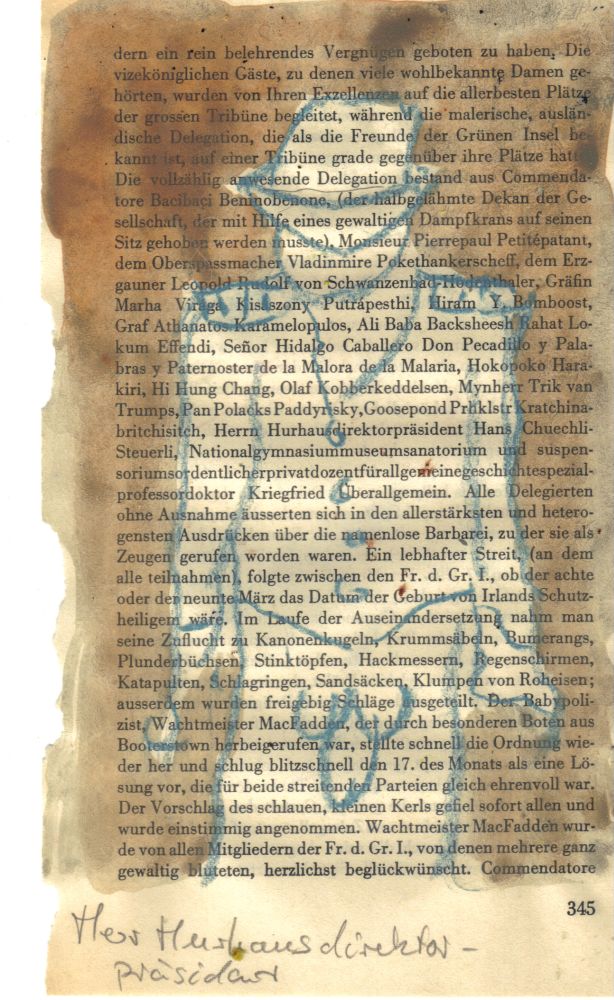 dern ein rein belehrendes Vergnügen geboten zu haben. Die
vizeköniglichen Gäste, zu denen viele wohlbekannte Damen ge-
hörten, wurden von Ihren Exzellenzen auf die allerbesten Plätze
der grossen Tribüne begleitet, während die malerische, auslän-
dische Delegation, die als die Freunde der Grünen Insel be-
kannt ist, auf einer Tribüne grade gegenüber ihre Plätze hatte.
Die vollzählig anwesende Delegation bestand aus Commenda-
tore Bacibaci Beninobenone, (der halbgelähmte Dekan der Ge-
sellschaft, der mit Hilfe eines gewaltigen Dampfkrans auf seinen
Sitz gehoben werden musste), Monsieur Pierrepaul Petitépatant,
dem Oberspassmacher Vladinmire Pokethankerscheff, dem Erz-
gauner Leopold Rudolf von Schwanzenbad-Hodenthaler, Gräfin
Marha Viraga Kisászony Putrápesthi, Hiram Y. Bomboost,
Graf Athanatos Karamelopulos, Ali Baba Backsheesh Rahat Lo-
kum Effendi, Señor Hidalgo Caballero Don Pecadillo y Pala-
bras y Paternoster de la Malora de la Malaria, Hokopoko Hara-
kiri, Hi Hung Chang, Olaf Kobberkeddelsen, Mynherr Trik van
Trumps, Pan Polacks Paddyrisky, Goosepond Prhklstr Kratchina-
britchisitch, Herrn Hurhausdirektorpräsident Hans Chuechli-
Steuerli, Nationalgymnasiummuseumsanatorium und suspen-
soriumsordentlicherprivatdozentfürallgemeinegeschichtespezial-
professordoktor Kriegfried Überallgemein. Alle Delegierten
ohne Ausnahme äusserten sich in den allerstärksten und hetero-
gensten Ausdrücken über die namenlose Barbarei, zu der sie als
Zeugen gerufen worden waren. Ein lebhafter Streit, (an dem
alle teilnahmen), folgte zwischen den Fr. d. Gr. I., ob der achte
oder der neunte März das Datum der Geburt von Irlands Schutz-
heiligem wäre. Im Laufe der Auseinandersetzung nahm man
seine Zuflucht zu Kanonenkugeln, Krummsäbeln, Bumerangs,
Plunderbüchsen, Stinktöpfen, Hackmessern, Regenschirmen,
Katapulten, Schlagringen, Sandsäcken, Klumpen von Roheisen;
ausserdem wurden freigebig Schläge ausgeteilt. Der Babypoli-
zist, Wachtmeister MacFadden, der durch besonderen Boten aus
Booterstown herbeigerufen war, stellte schnell die Ordnung wie-
der her und schlug blitzschnell den 17. des Monats als eine Lö-
sung vor, die für beide streitenden Parteien gleich ehrenvoll war.
Der Vorschlag des schlauen, kleinen Kerls gefiel sofort allen und
wurde einstimmig angenommen. Wachtmeister MacFadden wur-
de von allen Mitgliedern der Fr. d. Gr. I., von denen mehrere ganz
gewaltig bluteten, herzlichst beglückwünscht. Commendatore
345
Herr Hurhausdirektor-
präsident